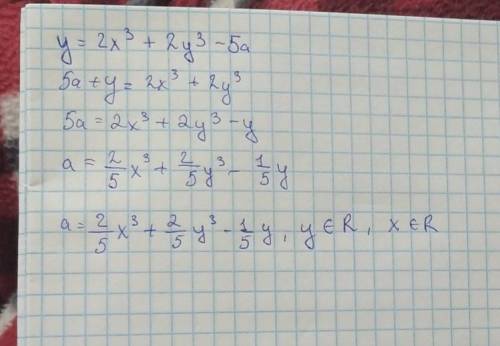 y = 2x³ + 2y³ - 5a
5a + y = 2x³ + 2y³
5a = 2x³ + 2y³ - y
a = 2/5 x³ + 2/5 y³ - 1/5 y
a = 2/5 x³ + 2/5 y³ - 1/5 y, y ∈ R, x ∈ R